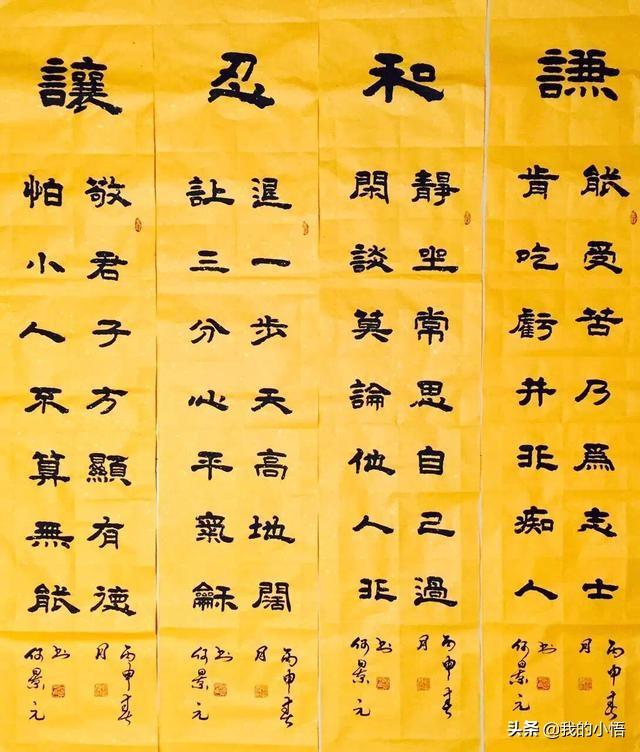 謙
能受苦乃爲志士
肯吃虧并非痴人
丙申春
月
书
何景元
和
靜坐常思自己過
閑談莫論他人非
丙申春
月
书
何景元
忍
退一步天高地闊
让三分心平氣龢
丙申春
月
书
何景元
讓
敬君子方顯有德
怕小人不算無能
丙申春
月
书
何景元
头条 @我的小悟